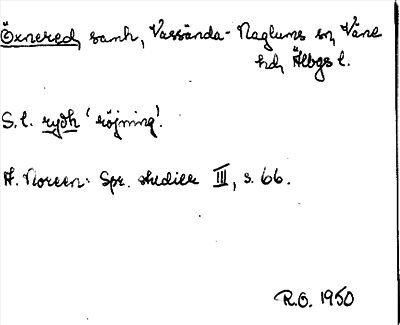 Öxnered, samh, Vassända-Naglums sn, Väne
hd, Älbgs l.
S. l. rydh 'röjning'.
A. Noreen: Spr. studier III, s. 66.
R.O. 1950